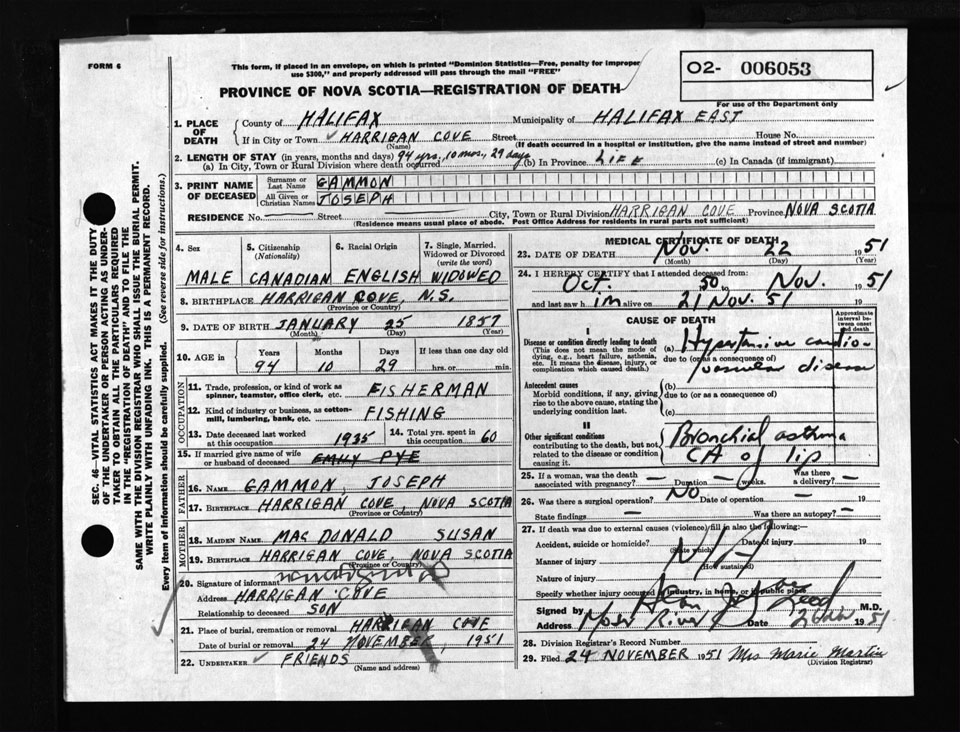 FORM 6
This form, if placed in an envelope, on which is printed "Dominion Statistics—Free, penalty for improper
use $300," and properly addressed will pass through the mail "FREE"
O2- 006053
PROVINCE OF NOVA SCOTIA—REGISTRATION OF DEATH
For use of the Department only
1. PLACE OF DEATH
County of HALIFAX Municipality of HALIFAX EAST
If in City or Town HARRIGAN COVE Street House No.
(Name) (If death occurred in a hospital or institution, give the name instead of street and number)
2. LENGTH OF STAY (in years, months and days) 94 yrs., 10 mos., 29 days
(a) In City, Town or Rural Division where death occurred (b) In Province LIFE (c) In Canada (if immigrant)
3. PRINT NAME OF DECEASED
Surname or Last Name GAMMON
All Given or Christian Names JOSEPH
RESIDENCE No. Street City, Town or Rural Division HARRIGAN COVE Province NOVA SCOTIA
(Residence means usual place of abode. Post Office Address for residents in rural parts not sufficient)
4. Sex 5. Citizenship (Nationality) 6. Racial Origin 7. Single, Married, Widowed or Divorced (write the word)
MALE CANADIAN ENGLISH WIDOWED
8. BIRTHPLACE HARRIGAN COVE, N.S.
(Province or Country)
9. DATE OF BIRTH JANUARY 25 1857
(Month) (Day) (Year)
10. AGE in Years Months Days If less than one day old
94 10 29 hrs. or min.
OCCUPATION
11. Trade, profession, or kind of work as spinner, teamster, office clerk, etc. FISHERMAN
12. Kind of industry or business, as cotton-mill, lumbering, bank, etc. FISHING
13. Date deceased last worked at this occupation 1935 14. Total yrs. spent in this occupation 60
15. If married give name of wife or husband of deceased EMILY PYE
FATHER
16. NAME GAMMON, JOSEPH
17. BIRTHPLACE HARRIGAN COVE, NOVA SCOTIA
(Province or Country)
MOTHER
18. MAIDEN NAME MAC DONALD SUSAN
19. BIRTHPLACE HARRIGAN COVE, NOVA SCOTIA
(Province or Country)
20. Signature of informant
Address HARRIGAN COVE
Relationship to deceased SON
21. Place of burial, cremation or removal HARRIGAN COVE
Date of burial or removal 24 NOVEMBER, 1951
22. UNDERTAKER FRIENDS
(Name and address)
MEDICAL CERTIFICATE OF DEATH
23. DATE OF DEATH Nov. 22 1951
(Month) (Day) (Year)
24. I HEREBY CERTIFY that I attended deceased from:
Oct. 50 to Nov. 1951
and last saw him alive on 21 Nov. 51 19
CAUSE OF DEATH
Approximate interval between onset and death
I
Disease or condition directly leading to death
(This does not mean the mode of dying, e.g., heart failure, asthenia, etc. It means the disease, injury, or complication which caused death.)
(a) Hypertensive cardio-
due to (or as a consequence of)
vascular disease
Antecedent causes
Morbid conditions, if any, giving rise to the above cause, stating the underlying condition last.
(b)
due to (or as a consequence of)
(c)
II
Other significant conditions
contributing to the death, but not related to the disease or condition causing it.
Bronchial asthma
CA of lip
25. If a woman, was the death associated with pregnancy? — Duration — weeks. Was there a delivery? —
26. Was there a surgical operation? NO Date of operation —
State findings — Was there an autopsy? —
27. If death was due to external causes (violence) fill in also the following:—
Accident, suicide or homicide? Date of injury 19
(State which)
Manner of injury N/A
(How sustained)
Nature of injury
Specify whether injury occurred in industry, in home, or in public place
Signed by M.D.
Address Moser River Date 1951
28. Division Registrar's Record Number
29. Filed 24 NOVEMBER 1951 Mrs Marie Martin
(Division Registrar)
SEC. 46—VITAL STATISTICS ACT MAKES IT THE DUTY
OF THE UNDERTAKER OR PERSON ACTING AS UNDER-
TAKER TO OBTAIN ALL THE PARTICULARS REQUIRED
IN THE "REGISTRATION OF DEATH" AND TO FILE THE
SAME WITH THE DIVISION REGISTRAR WHO SHALL ISSUE THE BURIAL PERMIT.
WRITE PLAINLY WITH UNFADING INK. THIS IS A PERMANENT RECORD.
Every item of information should be carefully supplied. (See reverse side for instructions.)